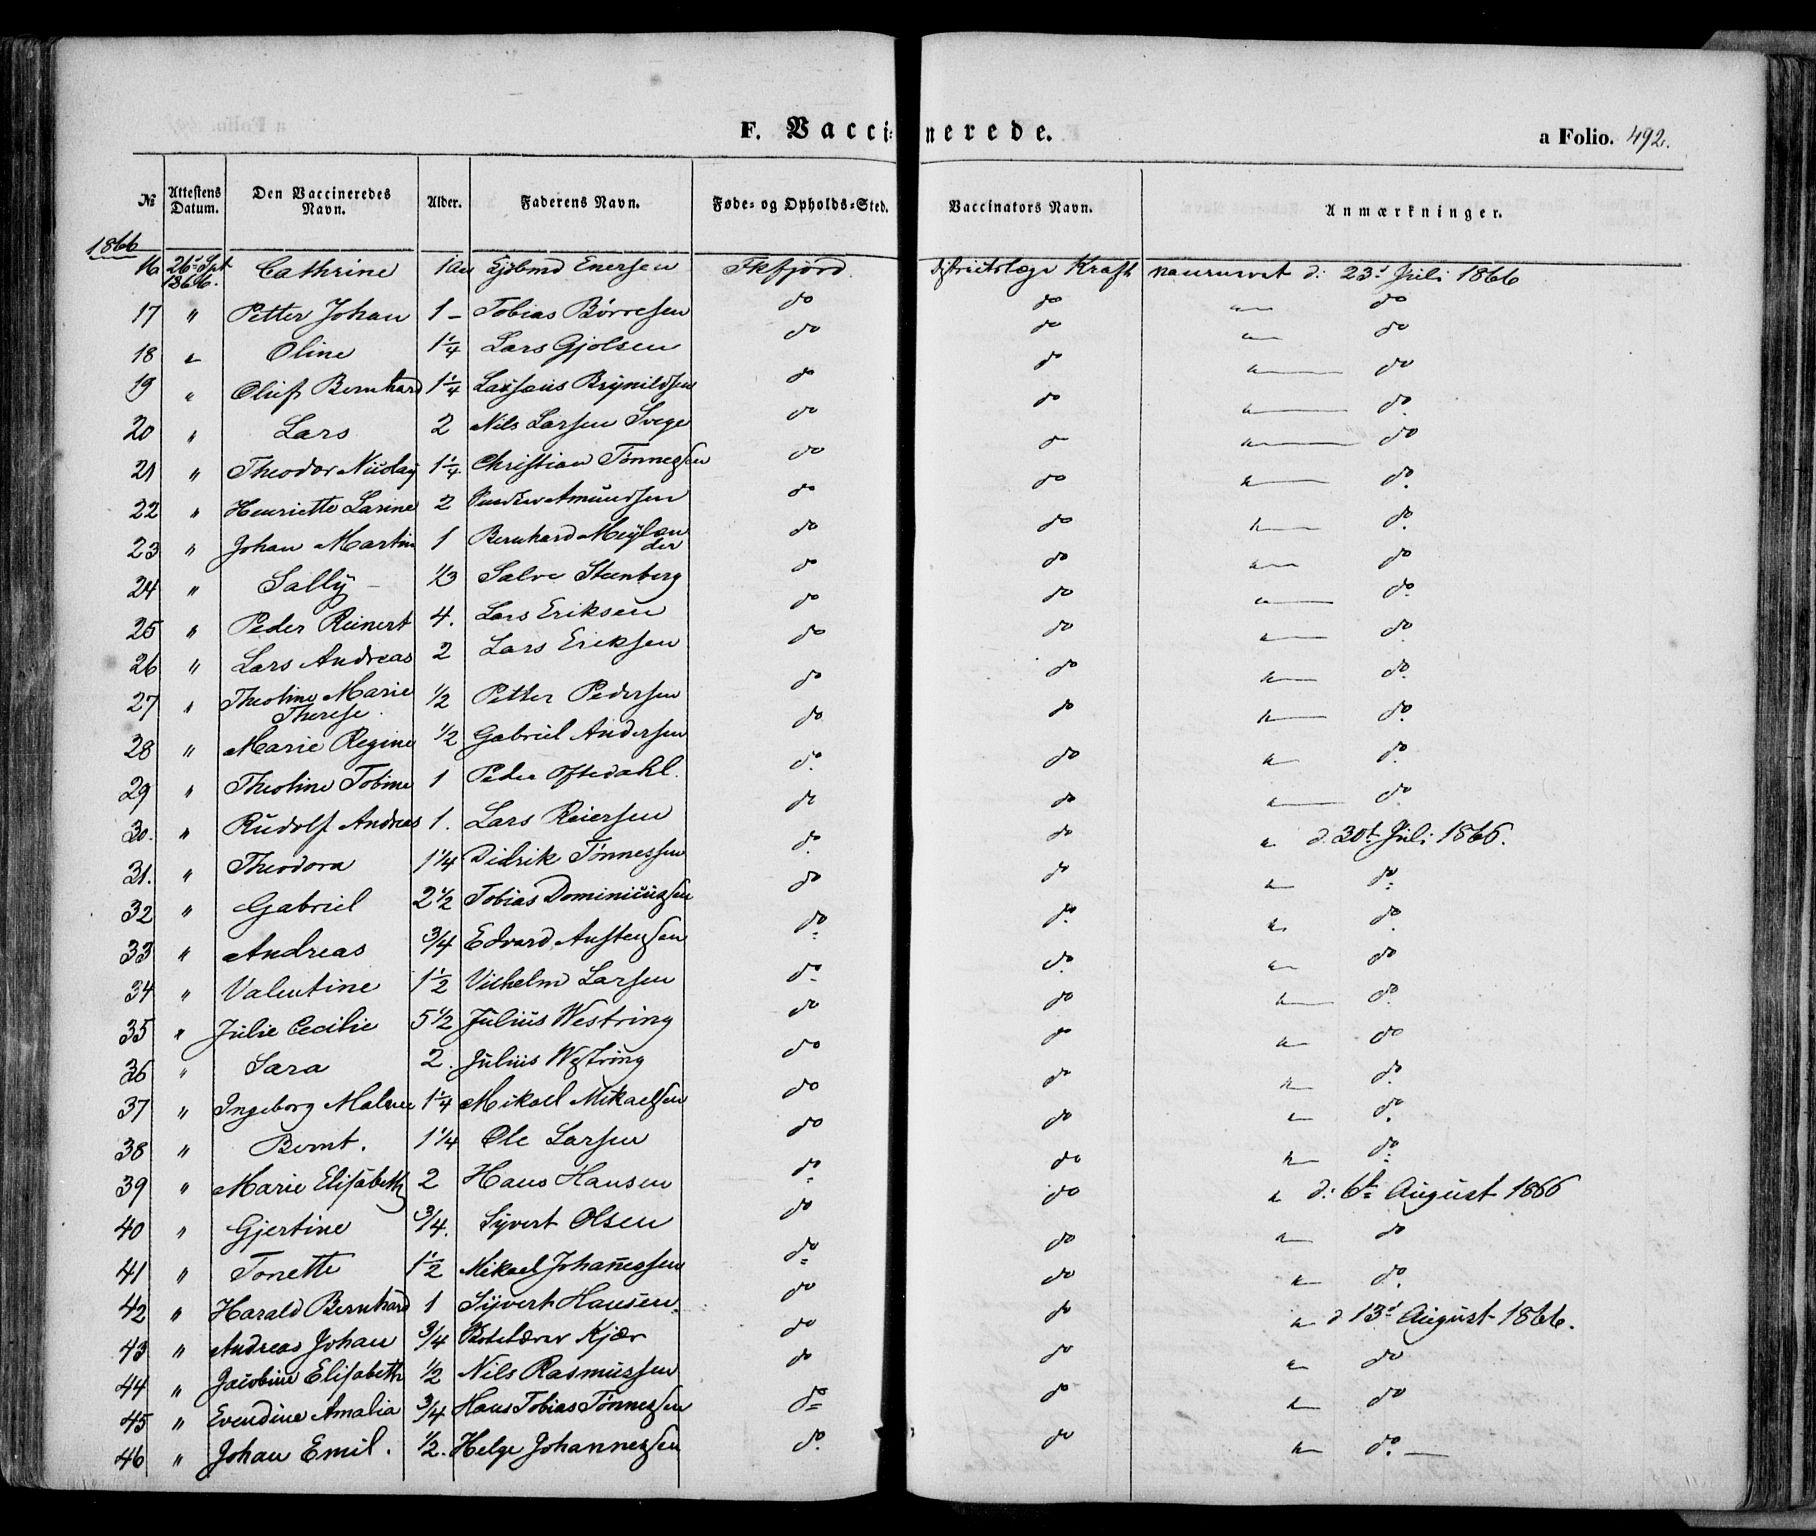 F. Vaccinerede.
a Folio. 492.
№ Attestens Datum. Den Vaccineredes Navn. Alder. Faderens Navn. Føde- og Opholds-Sted. Vaccinators Navn. Anmærkninger.
1866
16 26 Spt 1866. Cathrine 1 Enersen Fkfjord Kraft d: 23d Juli 1866
17 " Petter Johan 1 – Tobias Børresen do do " do
18 " Oline 1 1/4 Lars Gjølsen do do " do
19 " Oluf Bernhard 1 1/4 Brynildsen do do " do
20 " Lars 2 Nils Larsen Svege do do " do
21 " Theodor Nicolay 1 1/4 Christian Tønnessen do do " do
22 " Henriette Larine 2 Amundsen do do " do
23 " Johan Martin 1 Bernhard Meylander do do " do
24 " Sally – 1/3 Salve Steenberg do do " do
25 " Peder Reinert 4. Lars Eriksen do do " do
26 " Lars Andreas 2 Lars Eriksen do do " do
27 " Theoline Marie Therese. 1/2 Petter Pedersen do do " do
28 " Marie Regine 1/2 Gabriel Andersen do do " do
29 " Theoline Tobine 1 Peder Oftedahl. do do " do
30. " Rudolf Andreas 1. Lars Reiersen do do " do
31. " Theodora 1 1/4 Didrik Tønnessen do do " d. 30t Juli 1866.
32 " Gabriel 2 1/2 Tobias Dominicussen do do " do
33 " Andreas 3/4 Edvard Austensen do do " do
34 " Valentine 1 1/2 Vilhelm Larsen do do " do
35 " Julie Cecilie 5 1/2 Julius Westring do do " do
36 " Sara 2. Julius Westring do do " do
37 " Ingeborg Malene 1 1/4 Mikael Mikaelsen do do " do
38 " Bernt. 1 1/4 Ole Larsen do do " do
39 " Marie Elisabeth 2 Hans Hansen do do " do
40 " Gjertine 3/4. Syvert Olsen do do " d: 6t August 1866
41 " Tonette 1 1/2 Mikael Johannessen do do " do
42 " Harald Bernhard 1 Syvert Hansen. do do " do
43 " Andreas Johan 3/4 Kjær do do " d 13d August 1866.
44 " Jacobine Elisabeth 1/2 Nils Rasmussen do do " do
45 " Evendine Amalia 3/4 Hans Tobias Tønnessen do do " do
46 " Johan Emil. 1/2. Helge Johannessen do do " do. —